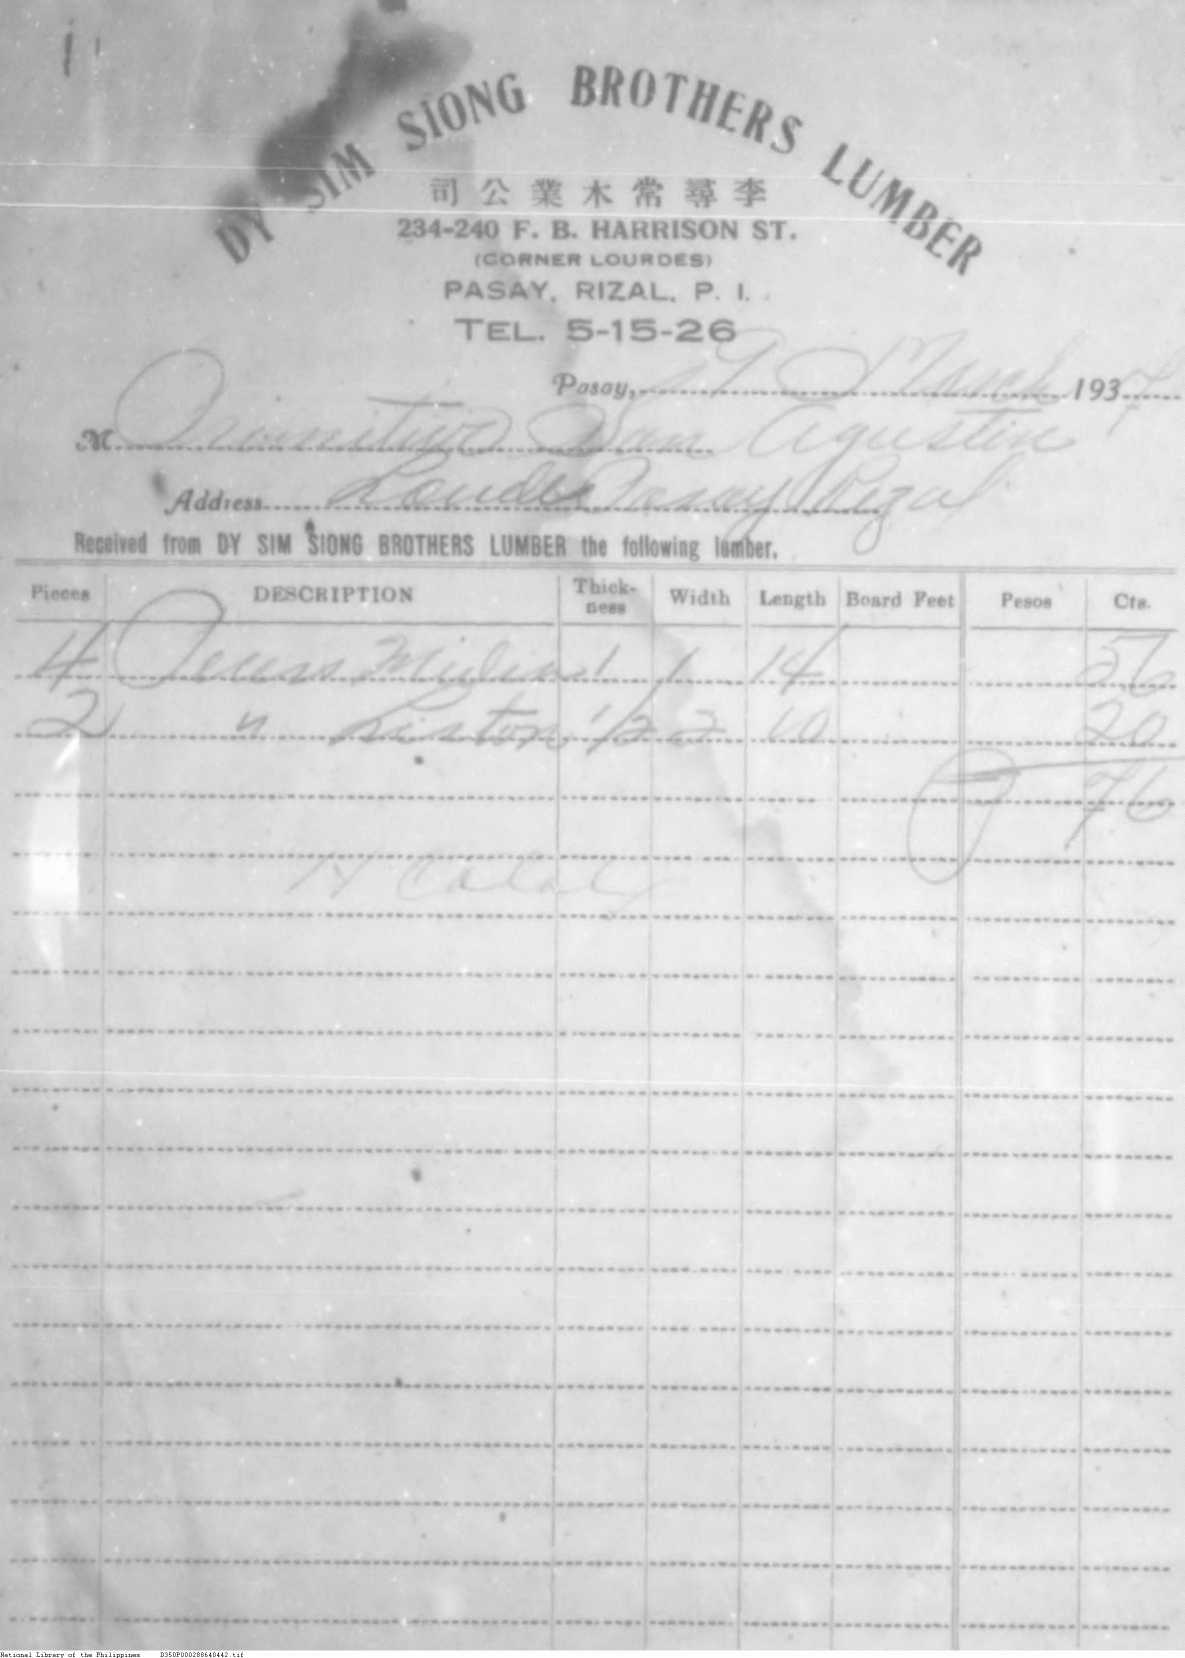 DY SIM SIONG BROTHERS LUMBER
司公業木常尋李
234-240 F. B. HARRISON ST.
(CORNER LOURDES)
PASAY, RIZAL, P. I.
TEL. 5-15-26
Pasay, 27 March 1937
M Primitivo San Agustin
Address Pasay Rizal
Received from DY SIM SIONG BROTHERS LUMBER the following lumber.
Pieces DESCRIPTION Thick-ness Width Length Board Feet Pesos Cts.
4 1 1 14 56
2 " Liston 1/2 2 10 20
P 76
National Library of the Philippines D350P000288640442.tif